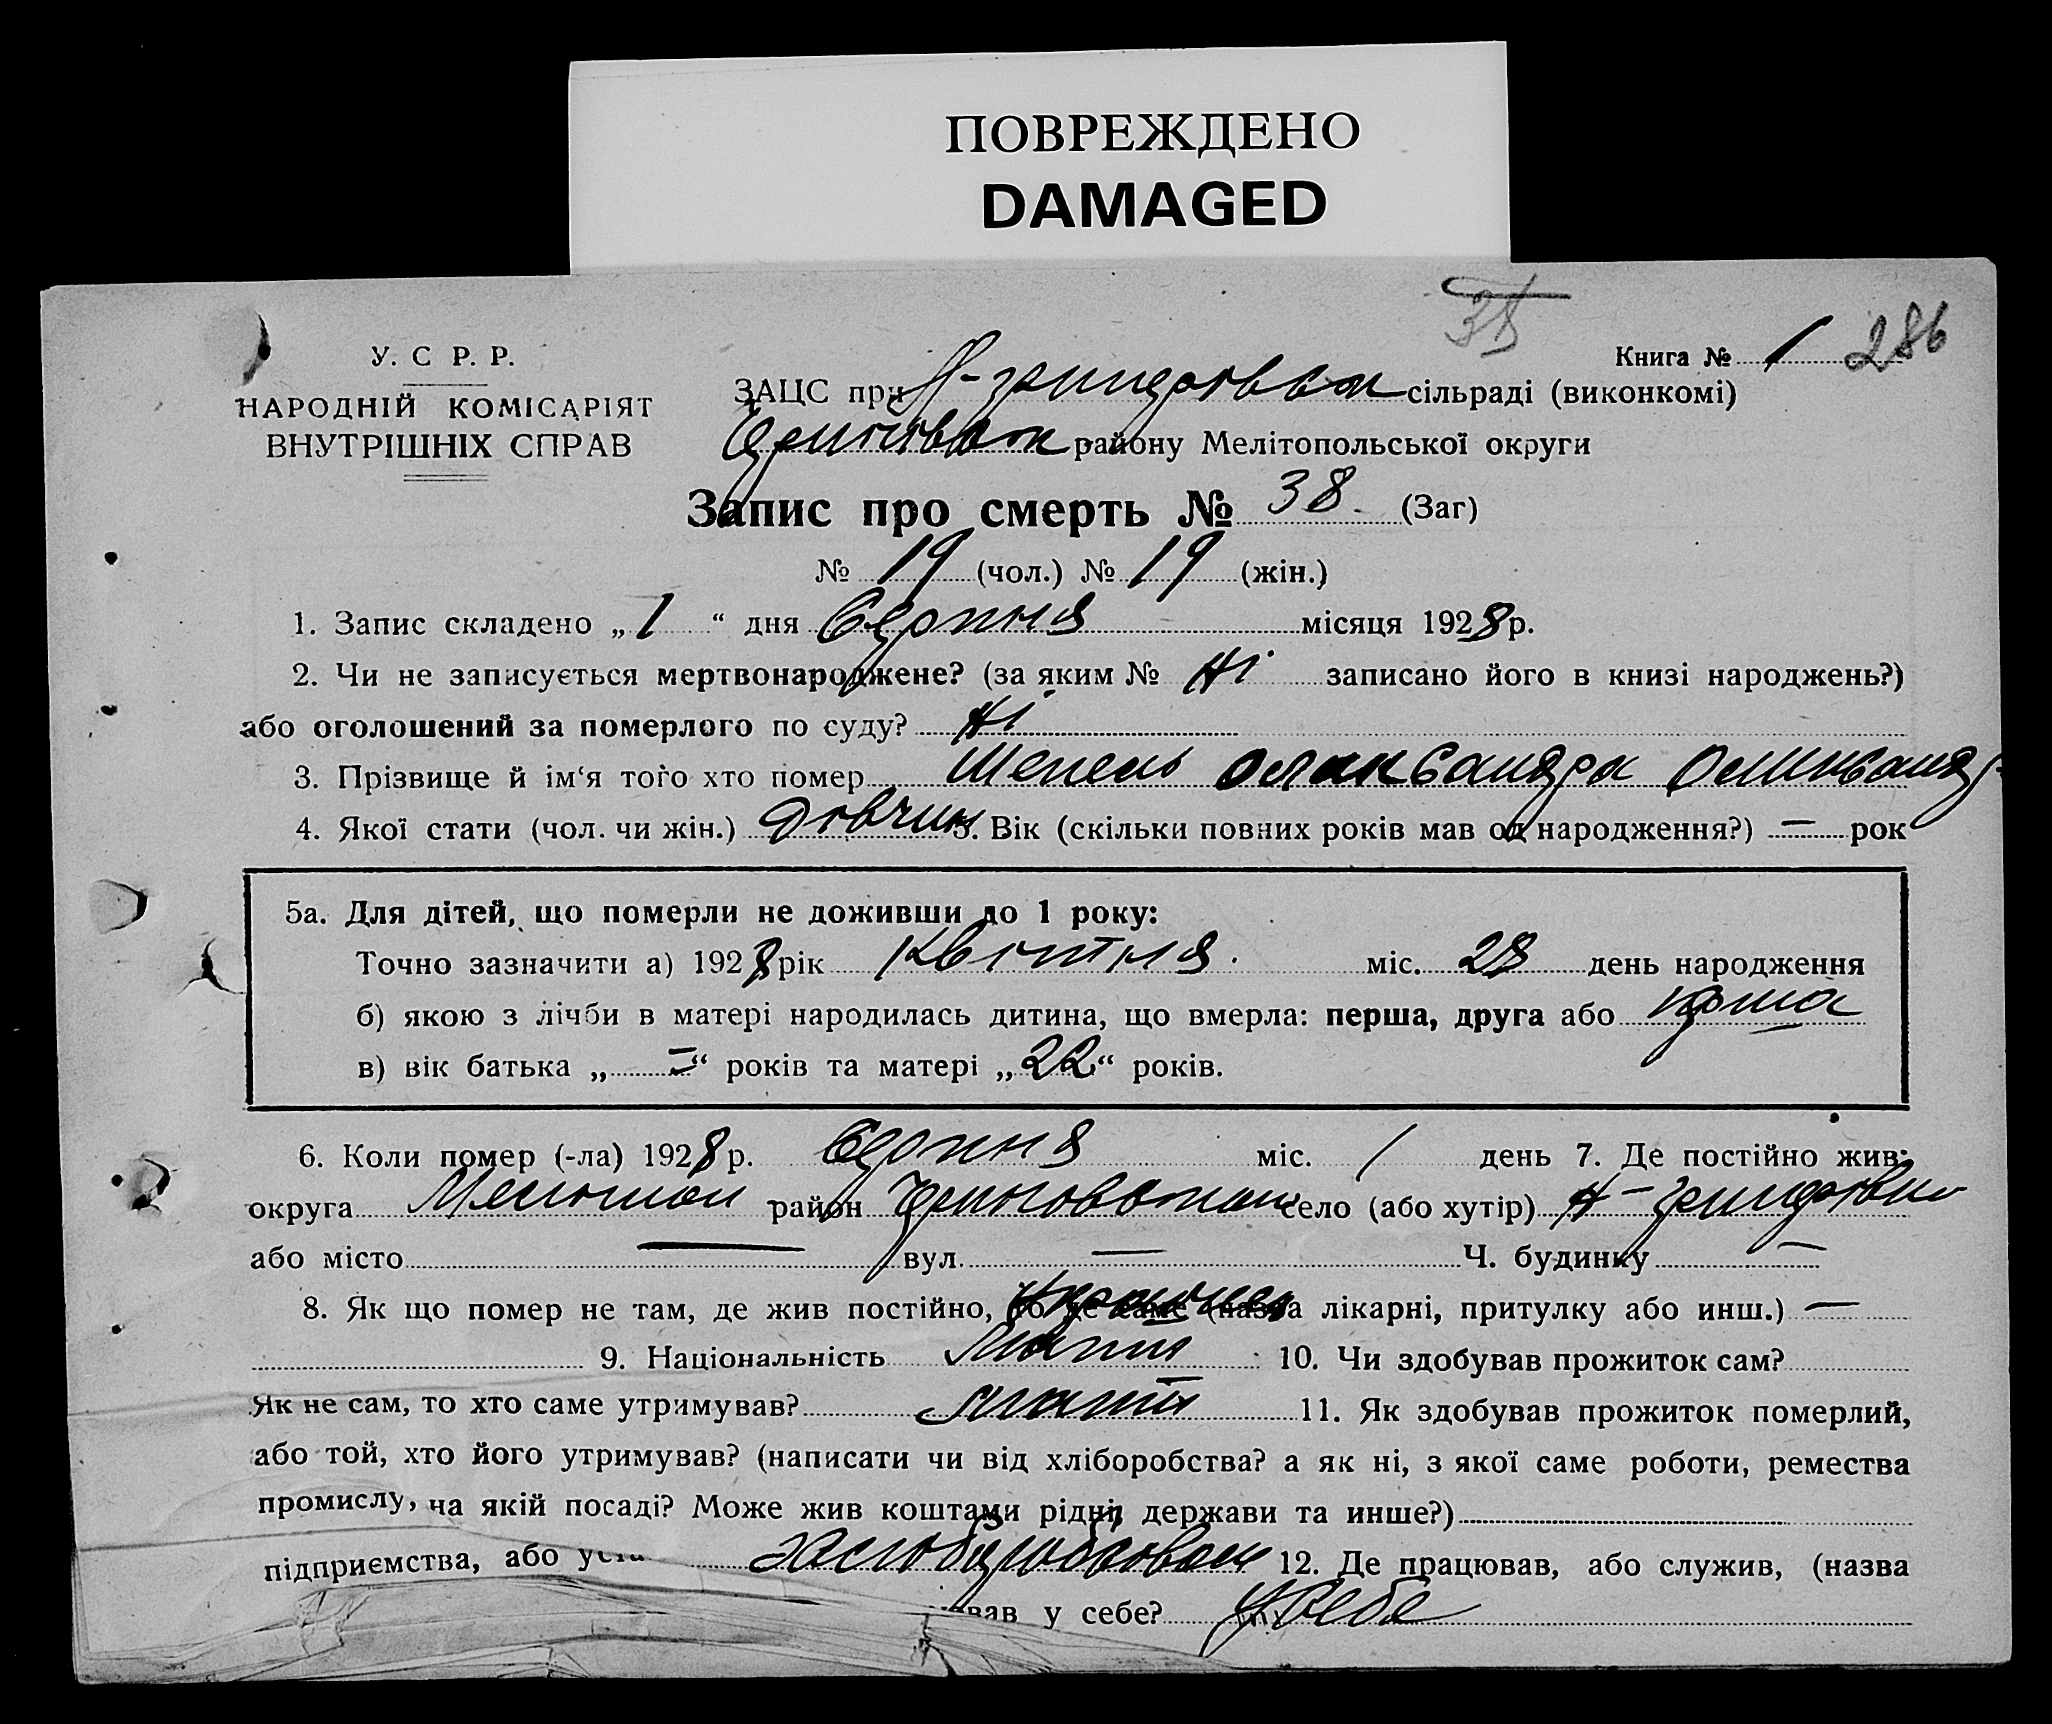 ПОВРЕЖДЕНО
DAMAGED
38
Книга № 1 286
У. С Р. Р.
НАРОДНІЙ КОМІСАРІЯТ
ВНУТРІШНІХ СПРАВ
ЗАЦС при сільраді (виконкомі)
району Мелітопольської округи
Запис про смерть № 38. (Заг)
№ 19 (чол.) № 19 (жін.)
1. Запис складено „ 1 “ дня Серпня місяця 1928 р.
2. Чи не записується мертвонароджене? (за яким № Ні записано його в книзі народжень?)
або оголошений за померлого по суду? Ні
3. Прізвище й ім‘я того хто помер Шепель
4. Якої стати (чол. чи жін.) 5. Вік (скільки повних років мав од народження?) — рок
5а. Для дітей, що померли не доживши до 1 року:
Точно зазначити а) 1928 рік Квітня міс. 28 день народження
б) якою з лічби в матері народилась дитина, що вмерла: перша, друга або
в) вік батька „ — “ років та матері „ 22 “ років.
6. Коли помер (-ла) 1928 р. Серпня міс. 1 день 7. Де постійно жив:
округа район село (або хутір)
або місто — вул. — Ч. будинку —
8. Як що помер не там, де жив постійно, то де саме (назва лікарні, притулку або инш.) —
9. Національність 10. Чи здобував прожиток сам?
Як не сам, то хто саме утримував? мати
11. Як здобував прожиток померлий,
або той, хто його утримував? (написати чи від хліборобства? а як ні, з якої саме роботи, ремества
промислу, на якій посаді? Може жив коштами рідні, держави та инше?)
12. Де працював, або служив, (назва
підприємства, або
у себе? У себе